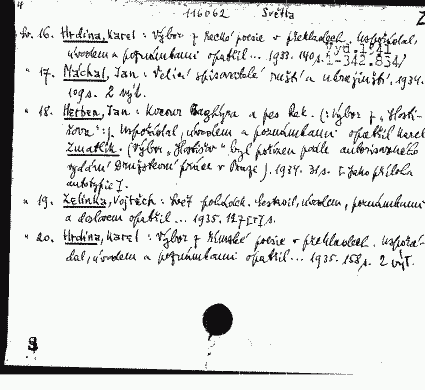 116062 Světla Z
sv. 16. Hrdina, Karel: Výbor z řecké poesie v překladech. Uspořádal,
úvodem a poznámkami opatřil... 1933. 140 s.
Vyd. 1941
1-342.834/
" 17. Náchal, Jan: Velcí spisovatelé ruští a ukrajinští. 1934.
109 s. 2 výt.
" 18. Herben, Jan: Kocour Baghýra a pes Rek. (: Výbor z „Hosti-
šova":). Uspořádal, úvodem a poznámkami opatřil Karel
Zmatlík. (Výbor z „Hostišova" byl pořízen podle autorisovaného
vydání Družstevní práce v Praze). 1934. 31 s. [: jako příloha
autotypie].
" 19. Zelinka, Vojtěch: Svět pohádek. Sestavil, úvodem, poznámkami
a doslovem opatřil... 1935. 127 [1] s.
" 20. Hrdina, Karel: Výbor z římské poesie v překladech. Uspořá-
dal, úvodem a poznámkami opatřil... 1935. 158 s. 2 výt.